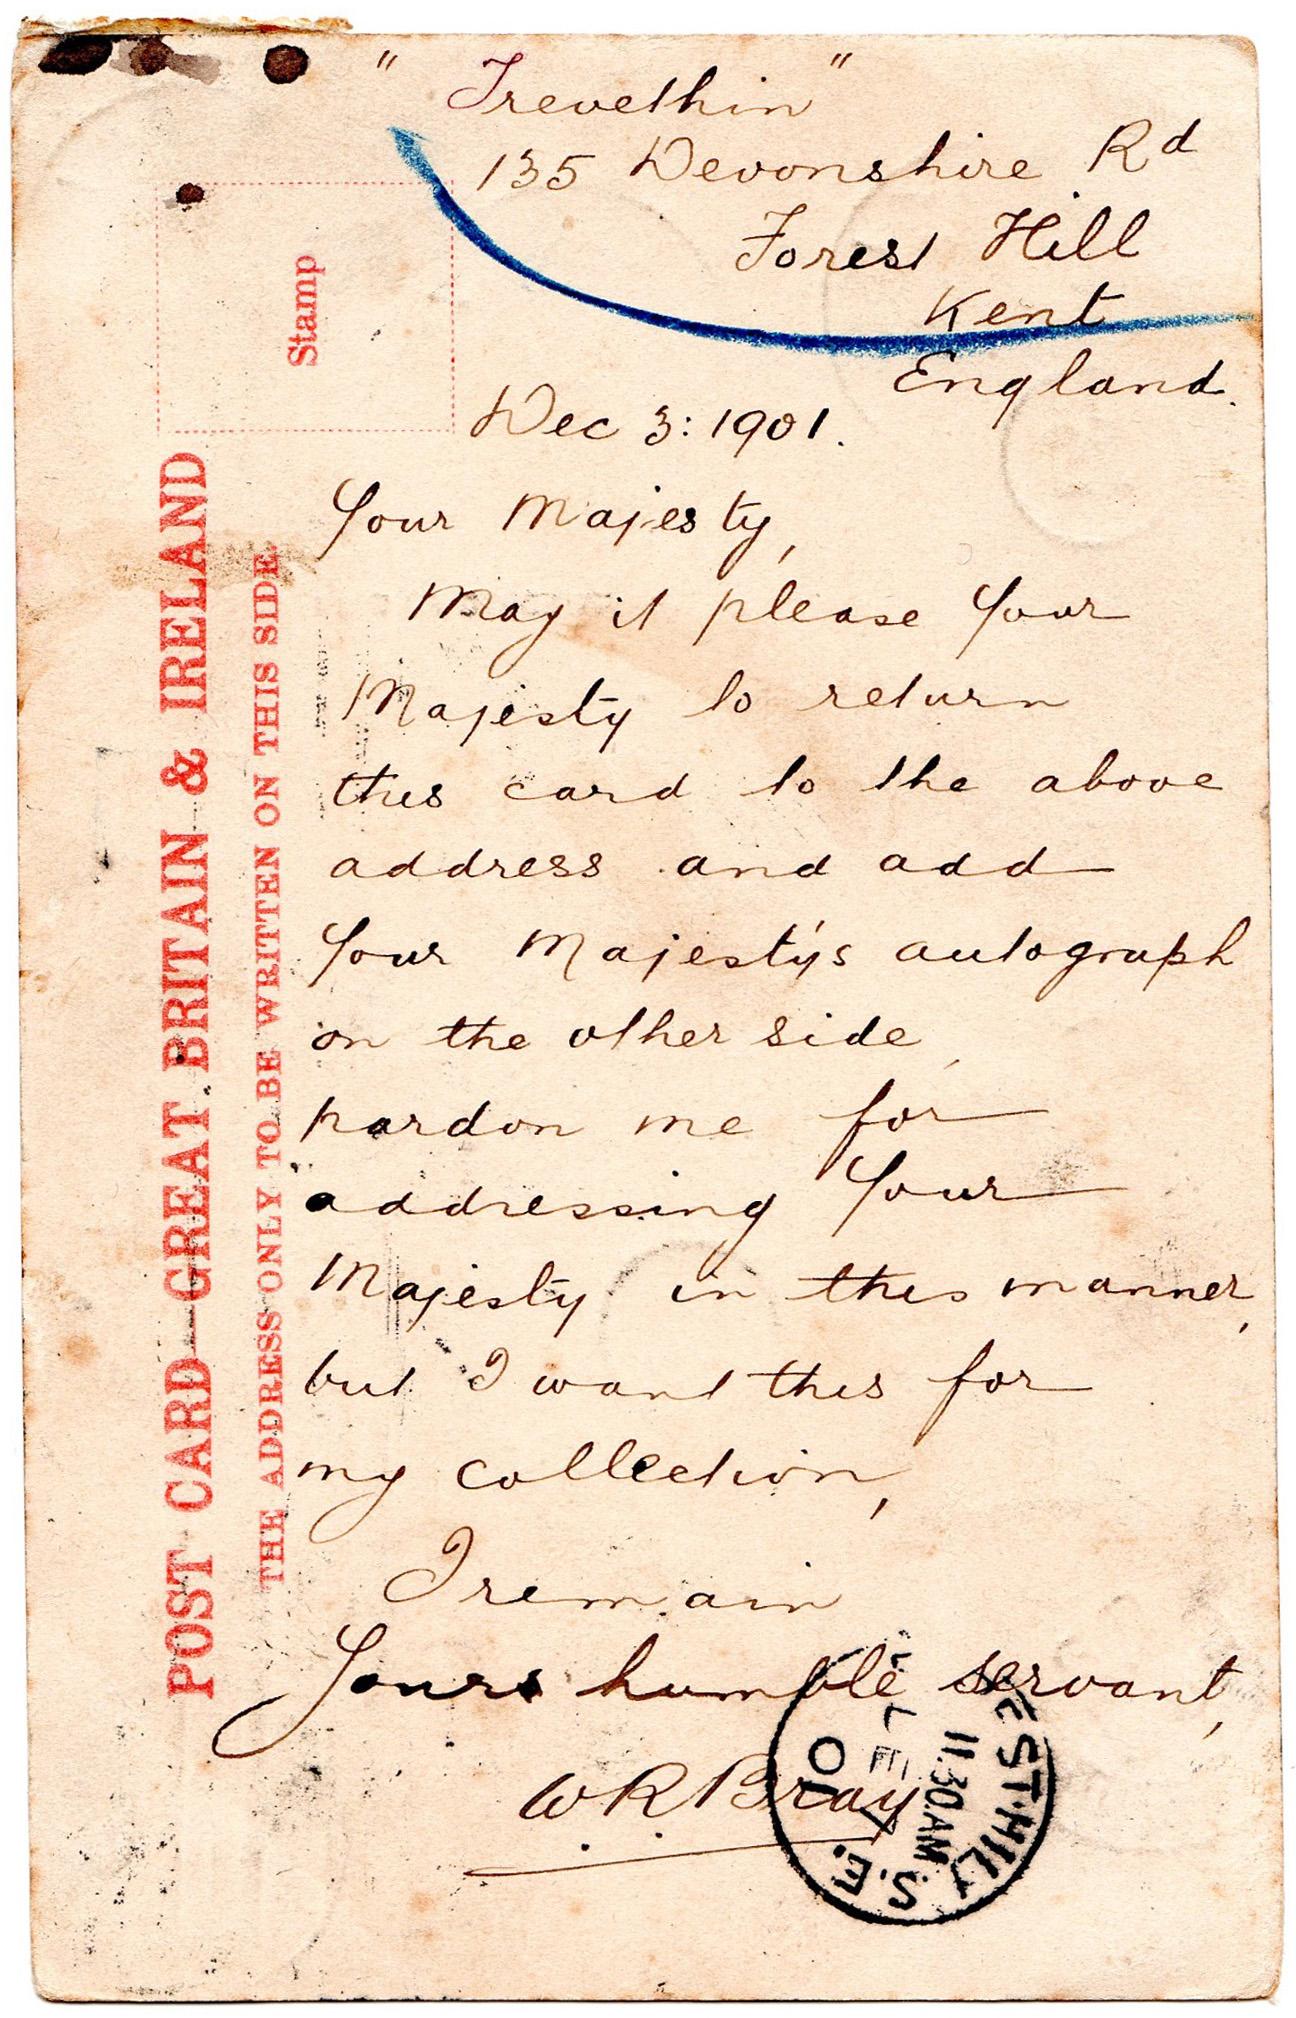 " Trevethin "
135 Devonshire Rd
Forest Hill
Kent
England.
Dec 3: 1901.
Your Majesty,
May it please Your
Majesty to return
this card to the above
address and add
Your Majesty's autograph
on the other side,
pardon me for
addressing Your
Majesty in this manner,
but I want this for
my collection,
I remain
Yours humble servant,
W R Bray
Stamp
POST CARD—GREAT BRITAIN & IRELAND
THE ADDRESS ONLY TO BE WRITTEN ON THIS SIDE.
EST·HILL S.E.
11.30.AM
01